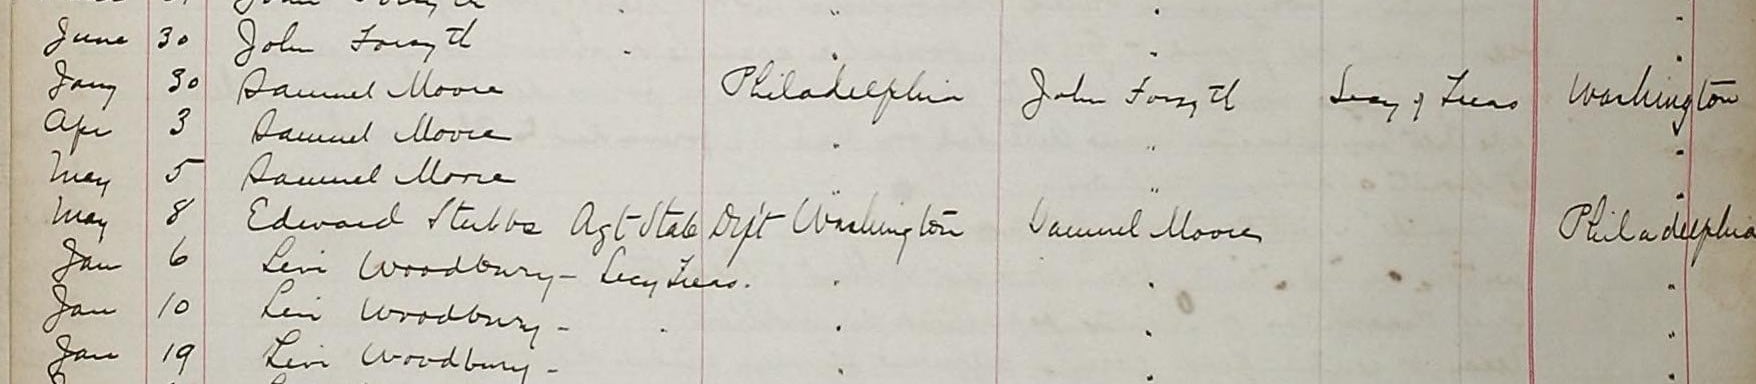 June 30 John Forsyth " " " "
Jany 30 Samuel Moore Philadelphia John Forsyth Secy of Treas Washington
Apr 3 Samuel Moore " " "
May 5 Samuel Moore " " "
May 8 Edward Stubbs Agt State Dept Washington Samuel Moore Philadelphia
Jan 6 Levi Woodbury - Secy Treas. " " "
Jan 10 Levi Woodbury - " " " "
Jan 19 Levi Woodbury - " " "